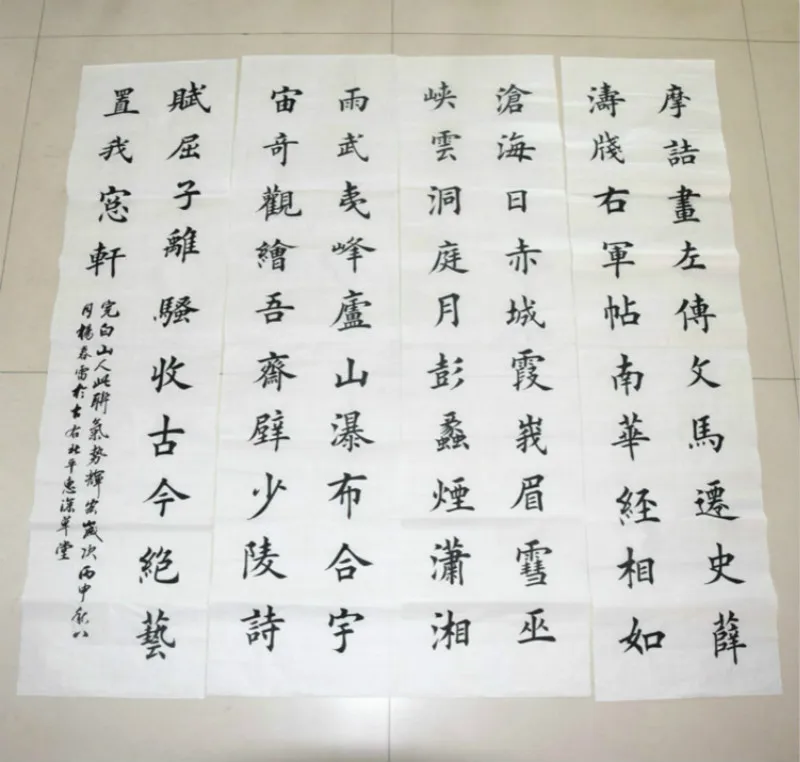 摩詰畫左傳文馬遷史薛
濤牋右軍帖南華經相如
滄海日赤城霞峩眉䨮巫
峽雲洞庭月彭蠡煙瀟湘
雨武夷峰廬山瀑布合宇
宙奇觀繪吾齋壁少陵詩
賦屈子離騷收古今絕藝
置我窓軒
完白山人此聯氣勢輝宏歲次丙申秋八
月楊春雷於古右北平惠深草堂